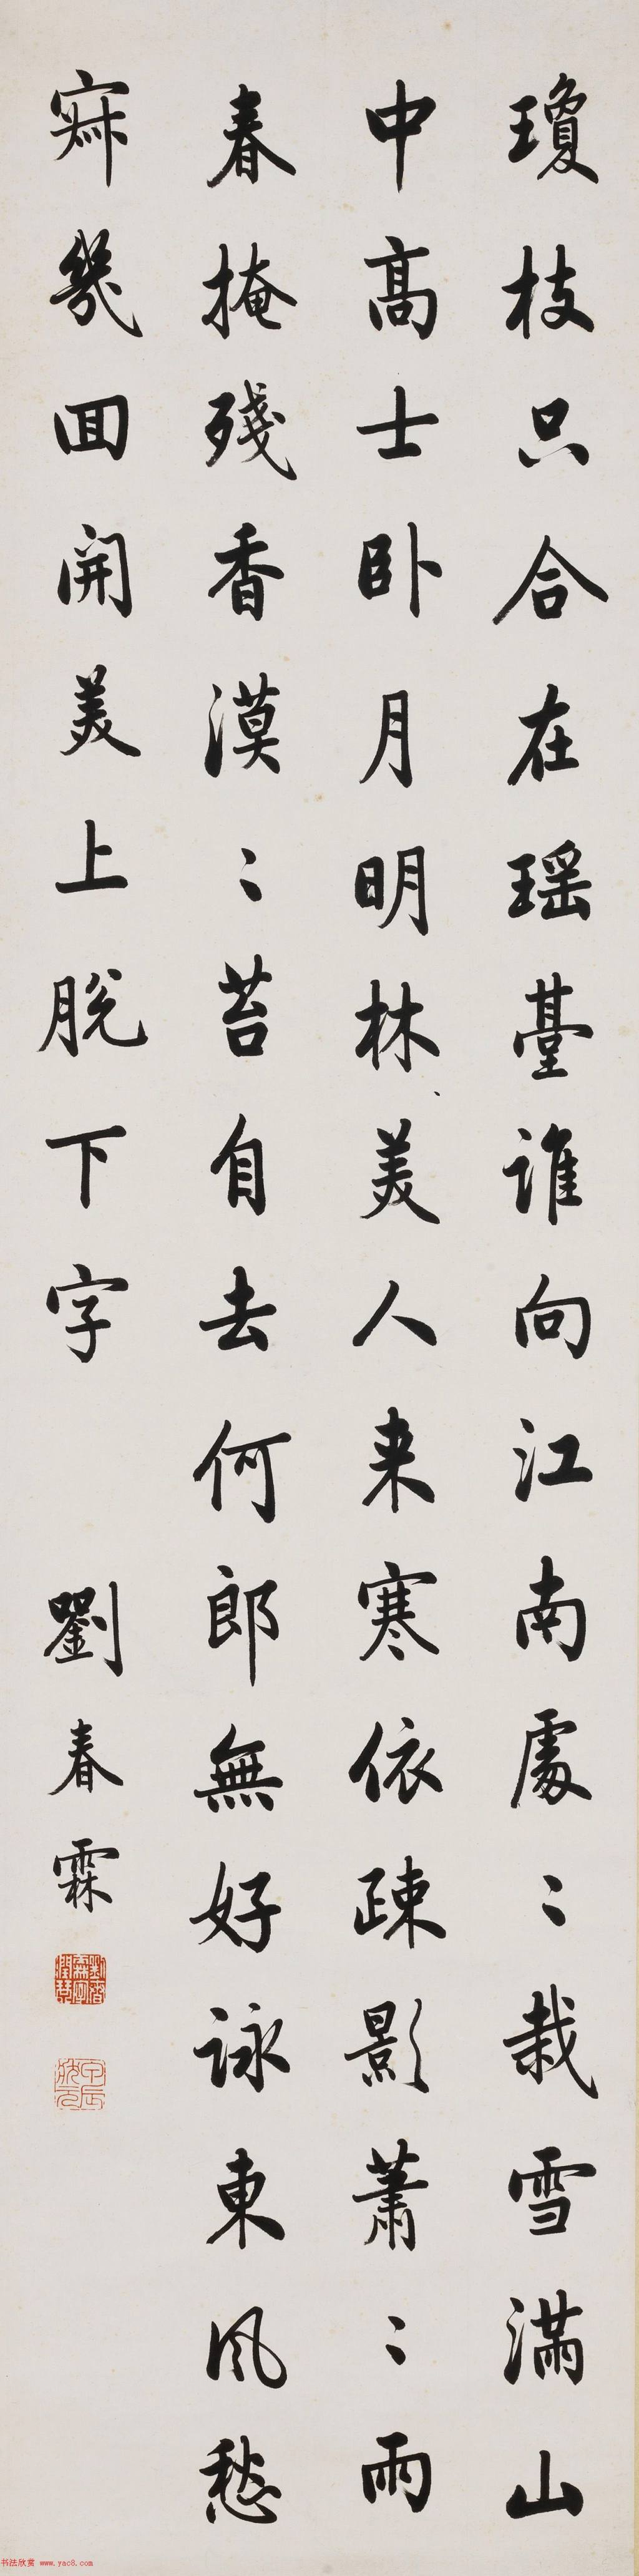 瓊枝只合在瑶臺谁向江南處〻栽雪滿山
中高士卧月明林美人来寒依疎影蕭〻雨
春掩殘香漠〻苔自去何郎無好詠東風愁
寂幾回開美上脫下字
劉春霖
书法欣赏 www.yac8.com